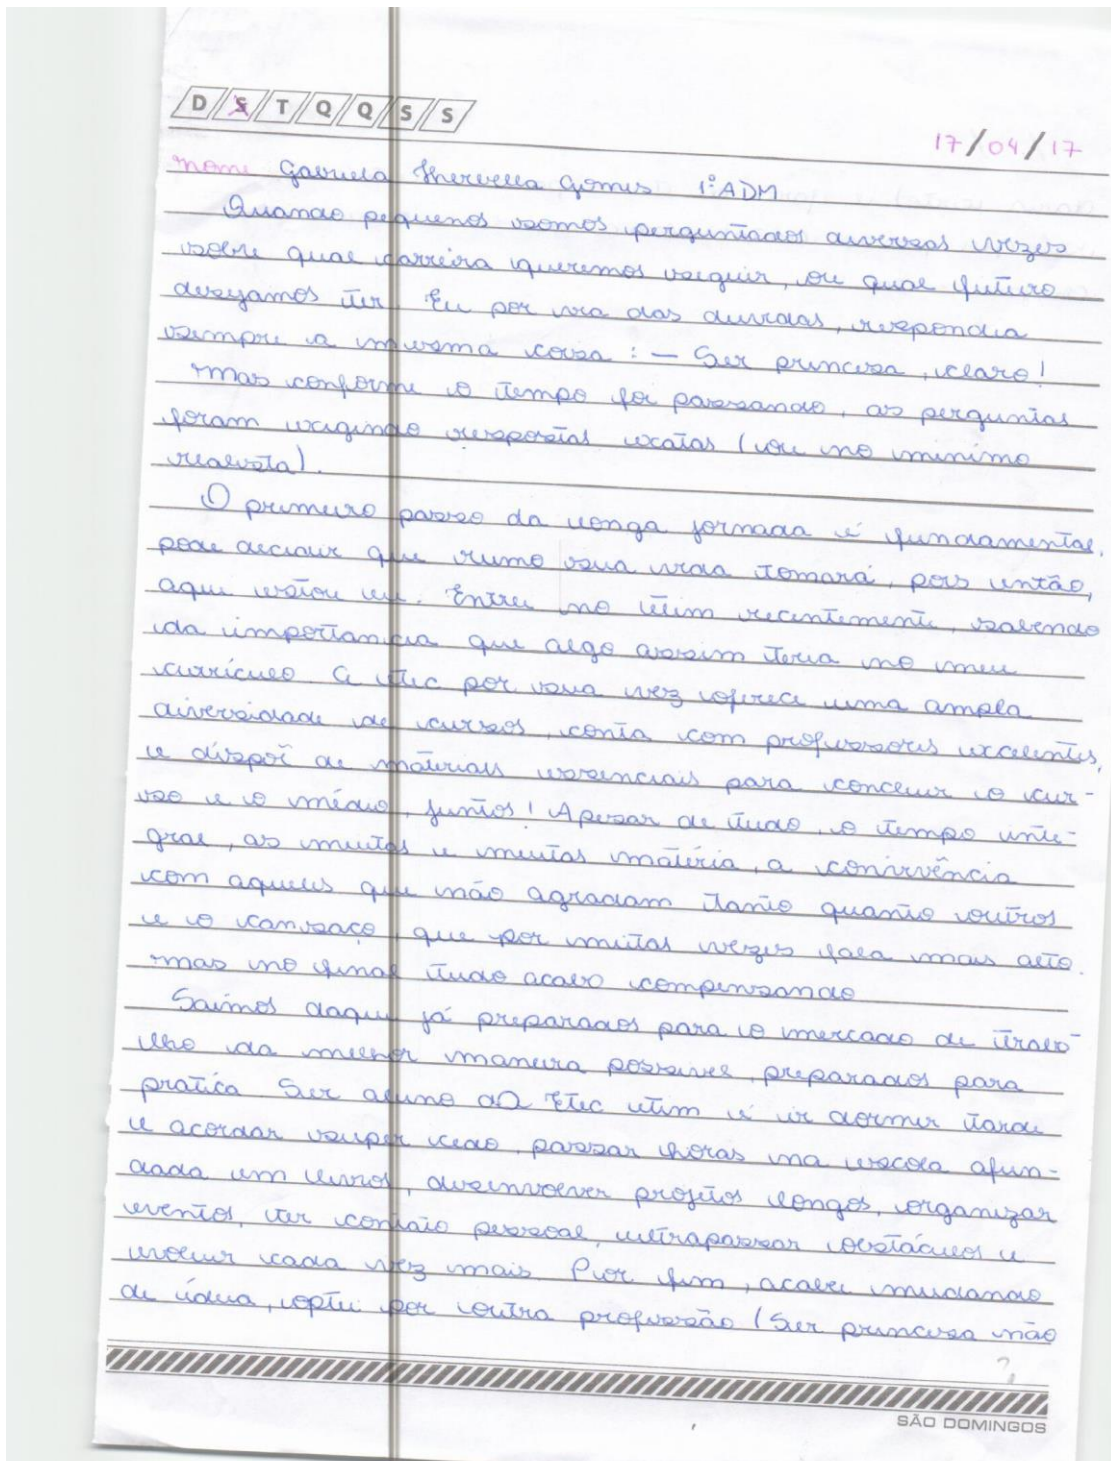 D S T Q Q S S
17/04/17
Nome Gabriela Gomes 1º ADM
Quando pequenos somos perguntados diversas vezes
sobre qual carreira queremos seguir, ou qual futuro
desejamos ter. Eu por via das duvidas, respondia
sempre a mesma coisa: - Ser princesa, claro!
Mas conforme o tempo foi passando, as perguntas
foram exigindo respostas exatas (ou no minimo
realista).
O primeiro passo da longa jornada é fundamental,
pode decidir que rumo sua vida tomará, pois então,
aqui estou eu. Entrei no etim recentemente, sabendo
da importancia que algo assim teria no meu
currículo. A etec por sua vez oferece uma ampla
diversidade de cursos, conta com professores excelentes,
e dispoẽ de materiais essenciais para concluir o cur-
so e o médio, juntos! Apesar de tudo, o tempo inte-
gral, as muitas e muitas matéria, a convivência
com aqueles que não agradam tanto quanto outros
e o cansaço, que por muitas vezes fala mais alto.
Mas no final tudo acaba compensando
Saímos daqui já preparados para o mercado de traba
lho da melhor maneira possivel, preparados para
pratica. Ser aluno da Etec etim é ir dormir tarde
e acordar super cedo, passar horas na escola afun-
dada em livros, desenvolver projetos longos, organizar
eventos, ter contato pessoal, ultrapassar obstáculos e
evoluir cada vez mais. Por fim, acabei mudando
de ideia, optei por outra profissão (Ser princesa não
SÃO DOMINGOS